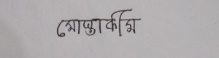 মোস্তাকীম